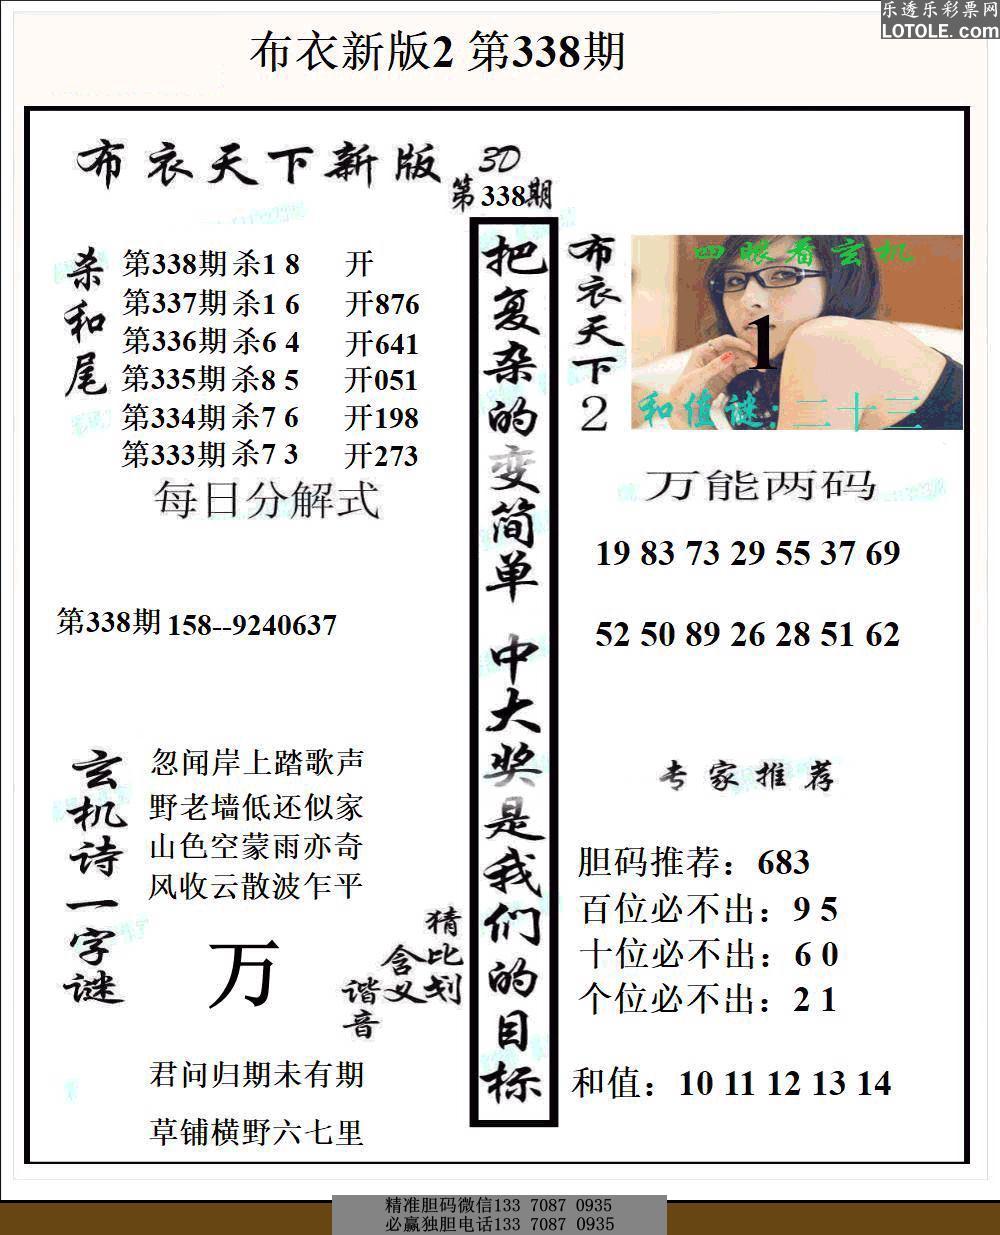 乐透乐彩票网
LOTOLE.com
布衣新版2 第338期
布衣天下新版 3D
第338期
杀和尾
第338期 杀1 8 开
第337期 杀1 6 开876
第336期 杀6 4 开641
第335期 杀8 5 开051
第334期 杀7 6 开198
第333期 杀7 3 开273
每日分解式
第338期 158--9240637
玄机诗一字谜
忽闻岸上踏歌声
野老墙低还似家
山色空蒙雨亦奇
风收云散波乍平
万
猜比划
含义
谐音
君问归期未有期
草铺横野六七里
把复杂的变简单 中大奖是我们的目标
布衣天下2
四眼看玄机
1
和值谜:二十三
万能两码
19 83 73 29 55 37 69
52 50 89 26 28 51 62
专家推荐
胆码推荐：683
百位必不出：9 5
十位必不出：6 0
个位必不出：2 1
和值：10 11 12 13 14
精准胆码微信133 7087 0935
必赢独胆电话133 7087 0935